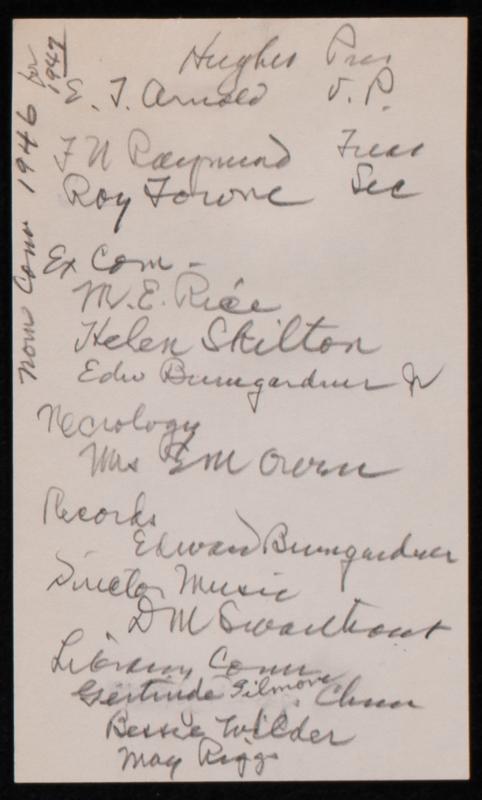 Nom Com 1946 for 1947
Hughes Pres
E. T. Arnold V. P.
F N Raymond Treas
Roy Towne Sec
Ex Com -
M. E. Rice
Helen Skilton
Edw Bumgardner Jr
Necrology
Mrs E M Owen
Records
Edward Bumgardner
Director Music
D M Swarthout
Library Com
Gertrude Gilmore, Chm
Bessie Wilder
May Riggs